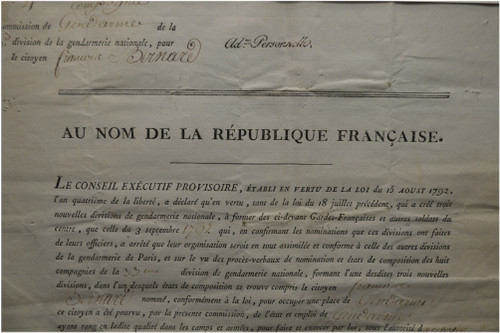 compagnies
commission de Gendarme de la
division de la gendarmerie nationale, pour
le citoyen françois Bernard
Adon Personnelle.
AU NOM DE LA RÉPUBLIQUE FRANÇAISE.
LE CONSEIL EXÉCUTIF PROVISOIRE, ÉTABLI EN VERTU DE LA LOI DU 15 AOUST 1792,
l'an quatrième de la liberté, a déclaré qu'en vertu, tant de la loi du 18 juillet précédent, qui a créé trois
nouvelles divisions de gendarmerie nationale, à former des ci-devant Gardes-Françaises et autres soldats du
centre, que celle du 3 septembre 1792 qui, en confirmant les nominations que ces divisions ont faites
de leurs officiers, a arrêté que leur organisation serait en tout assimilée et conforme à celle des autres divisions
de la gendarmerie de Paris, et sur le vu des procès-verbaux de nomination et états de composition des huit
compagnies de la division de gendarmerie nationale, formant l'une desdites trois nouvelles
divisions, dans l'un desquels états de composition se trouve compris le citoyen françois
Bernard nommé, conformément à la loi, pour occuper une place de Gendarme
ce citoyen a été pourvu, par la présente commission, de l'état et emploi de Gendarme
ayant rang en ladite qualité dans les camps et armées, pour faire et exercer par lui, sous l'autorité